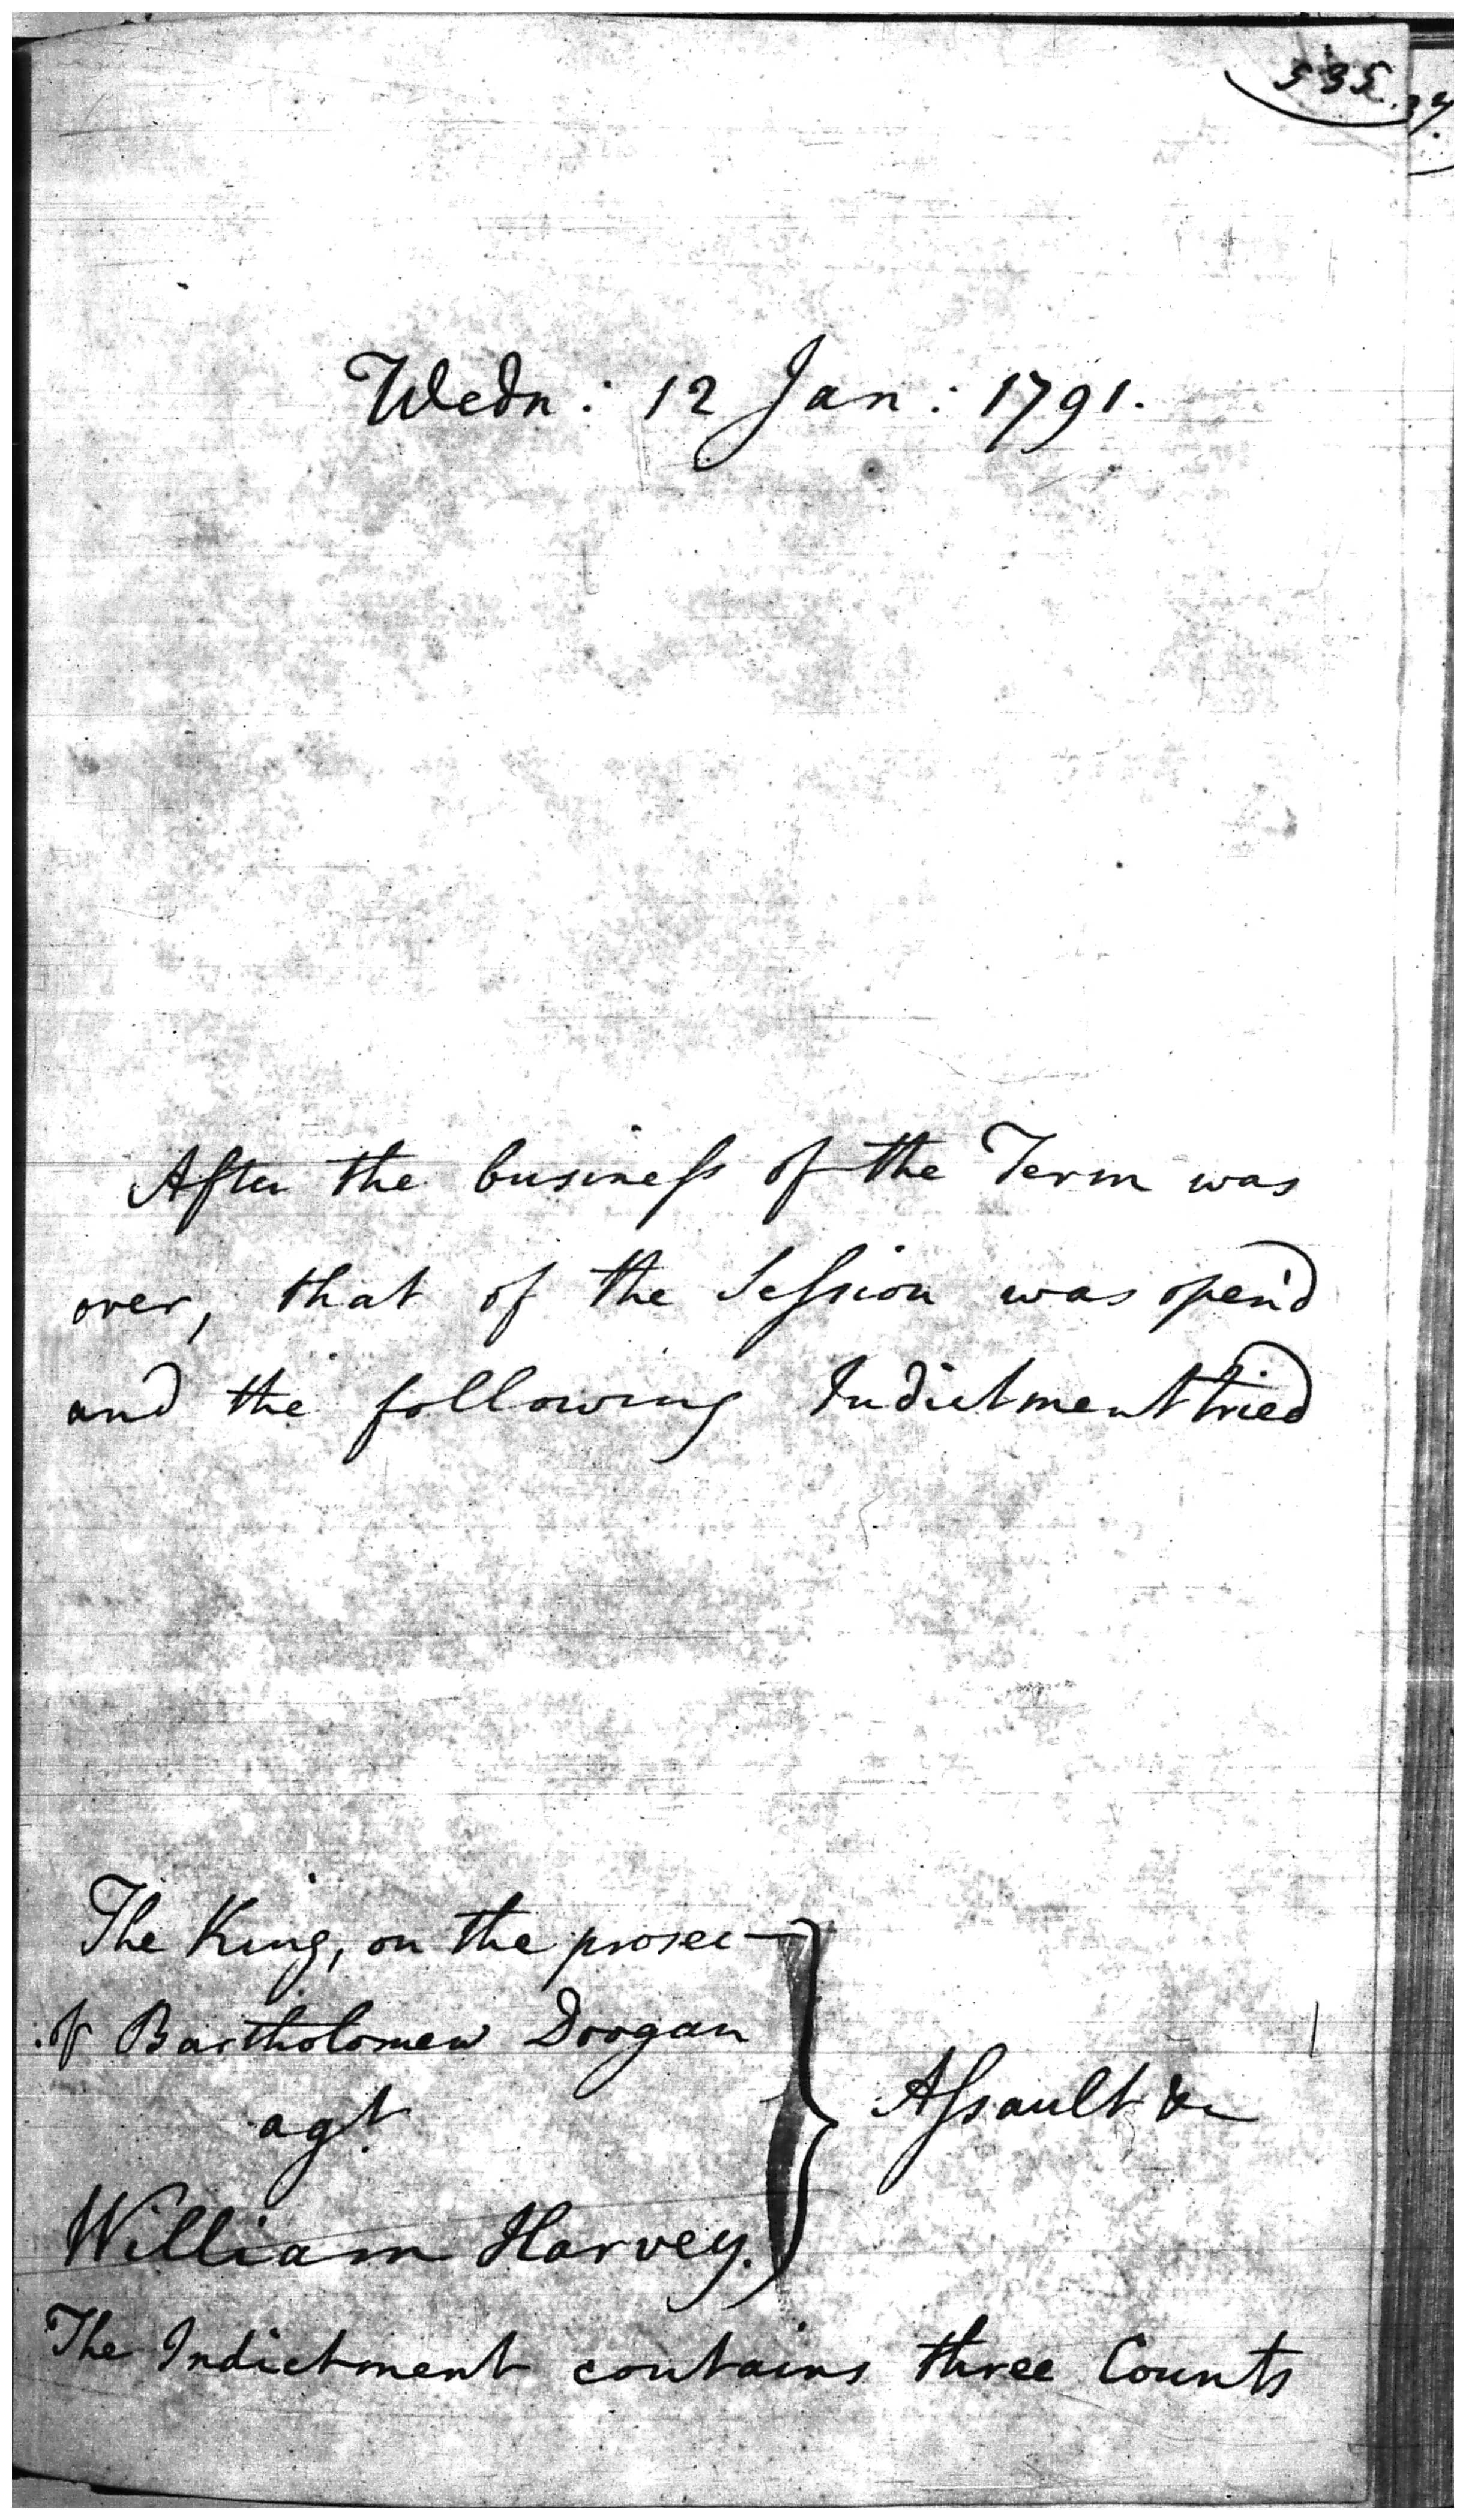 535.
Wedn: 12 Jan: 1791.
After the business of the Term was
over, that of the Session was open'd
and the following Indictment tried
The King, on the prosec—
:of Bartholomew Doogan
agt.
Assault &c
William Harvey.
The Indictment contains three Counts